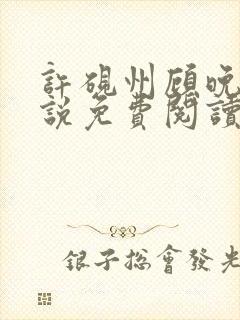 許硯州顧晚
說免費閱讀
銀子總會發光